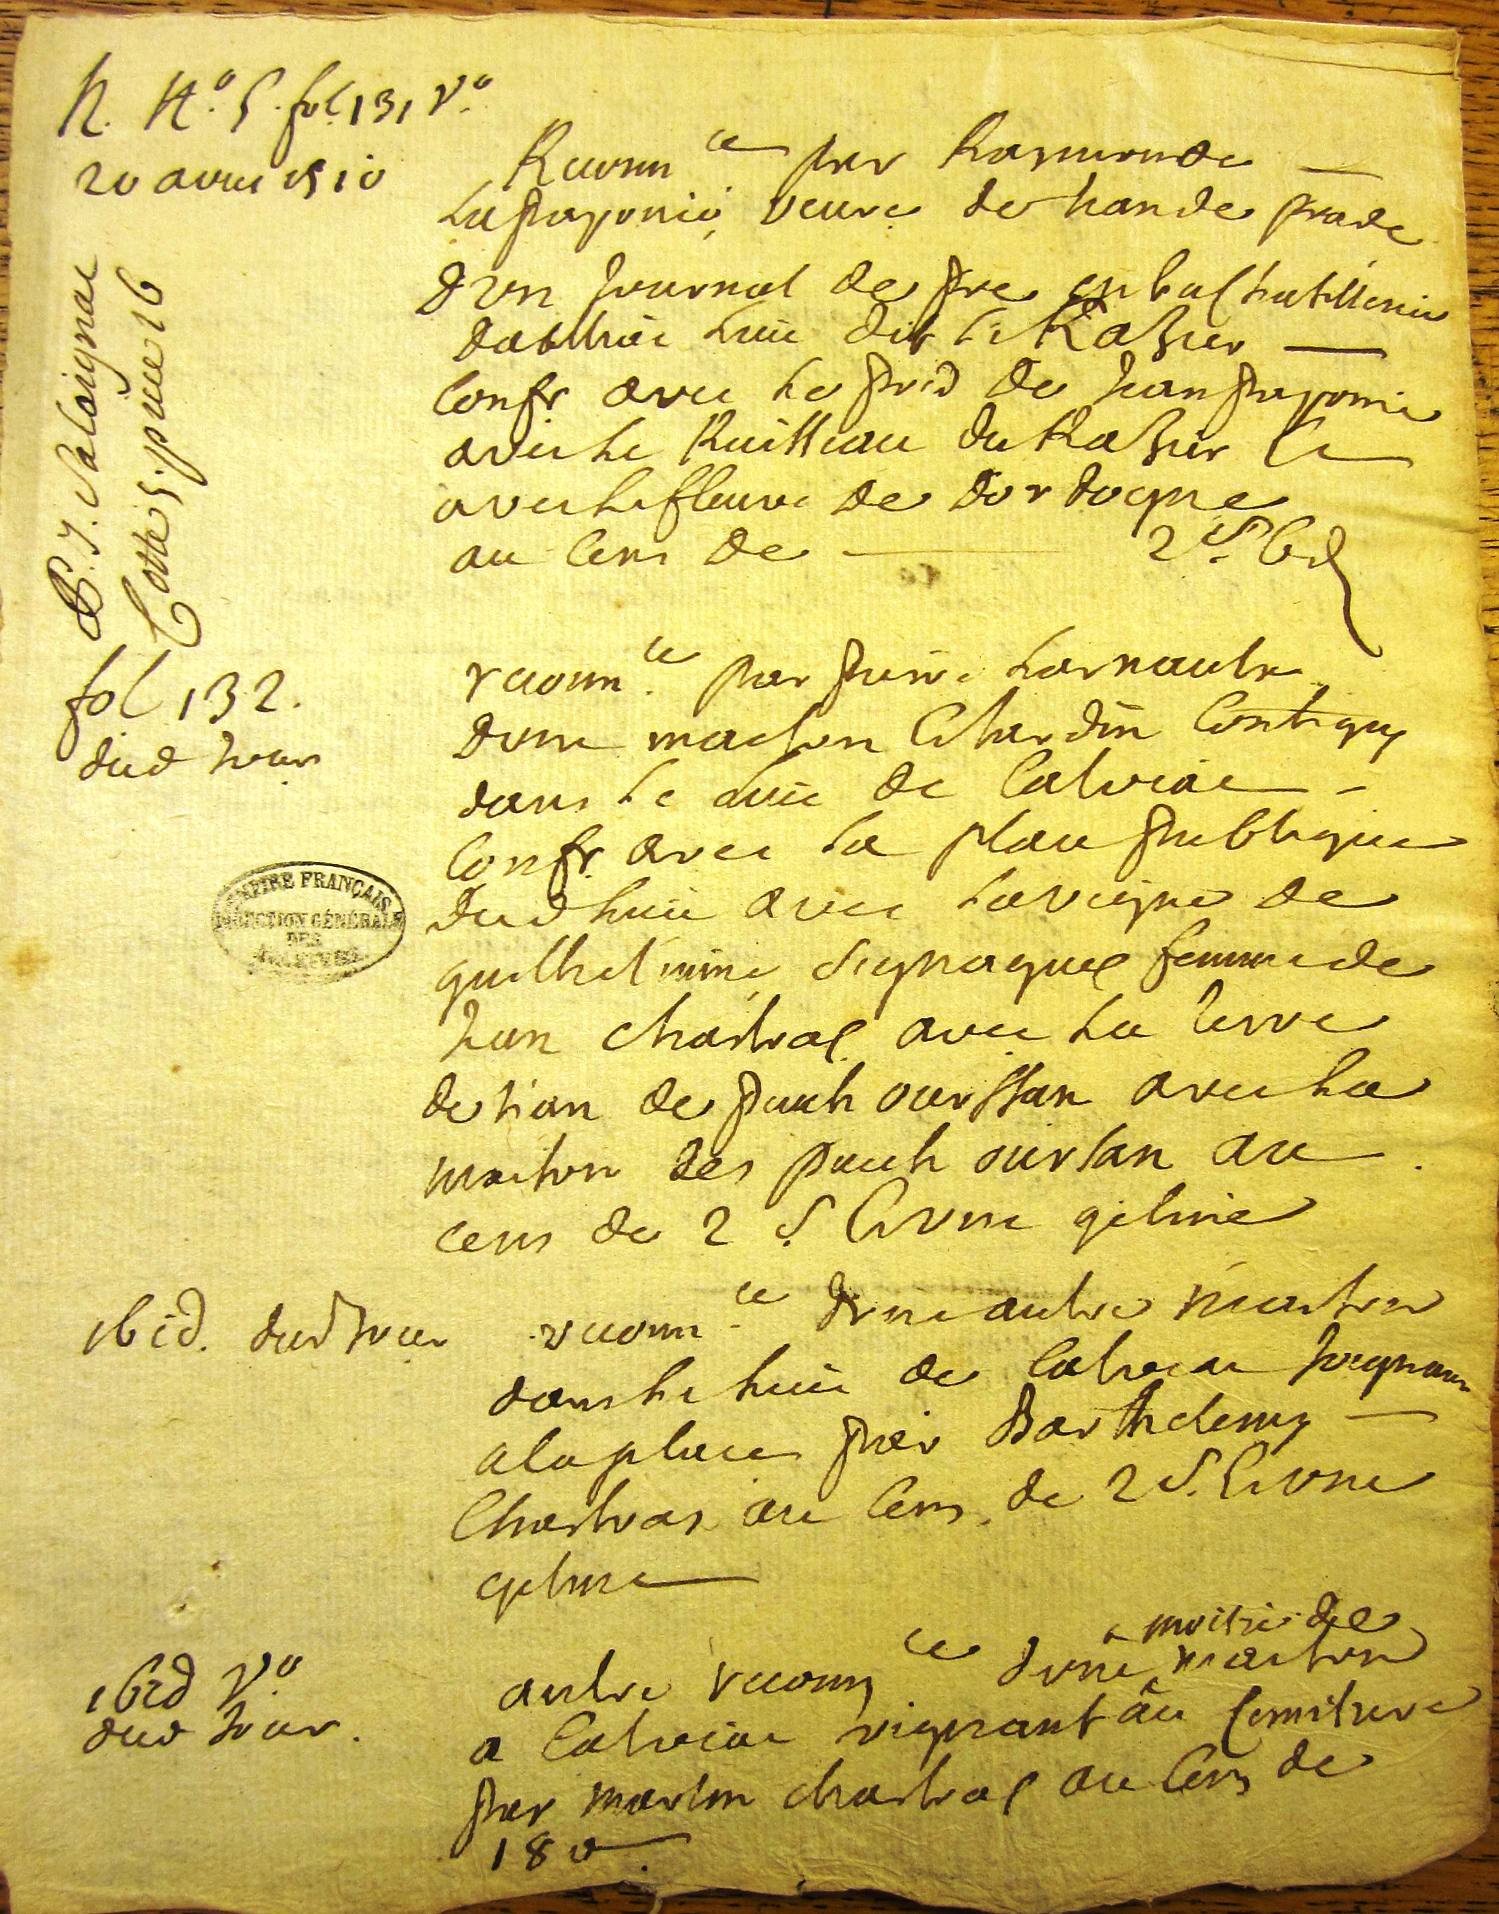 N. N.º 5. fol 131 Vº
20 avril 1510
P. J. Salaignac
Cotte 5. piece 26
Reconn ce par Raymonde
Lapaponie veuve de han de prade
d'vn Journal de pre en la Chatellenie
daillac lieu dit le Razier
Confr avec le pred de Jean paponie
avec le Ruisseau du Razier &
avec le fleuve de dordogne
au Cens de 2 s. 6 d
fol 132.
dud Jour
reconn ce. par pierre Larnaute
d'vne maison & Jardin Contigus
dans le lieu de Calviac
Confr. avec la place publique
dud lieu avec la vigne de
guillelmine Signaque femme de
Jean chastras avec la terre
de Jean de puech oursan avec la
maison des puech oursan au
cens de 2 s. & vne geline
ibid. dud Jour
reconn ce d'vne autre maison
dans le lieu de Calviac Joignant
a la place par Barthelemy
Chastras au Cens de 2 s. & vne
geline
ibid Vº
dud Jour.
autre reconn ce d'vne moitié de maison
a Calviac Joignant au Cemitiere
par martin chastras au Cens de
18 d.
EMPIRE FRANÇAIS
DIRECTION GÉNÉRALE
DES
ARCHIVES